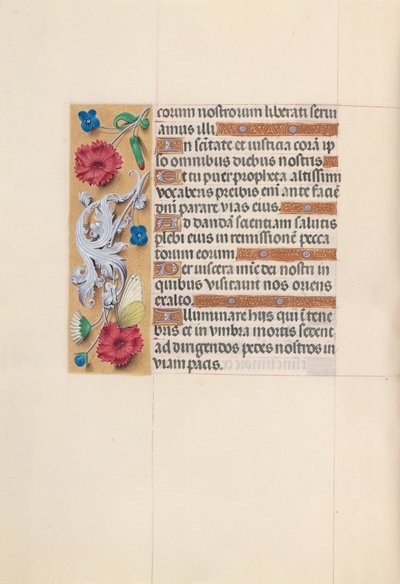 corum nostrorum liberati serui
amus illi
In sc̄itate et iusticia corā ip
so omnibus diebus nostris
Et tu puer propheta altissimi
vocaberis preibis eni ante facie
dn̄i parare vias eius.
Ad dandā scientiam salutis
plebi eius in remissionē pecca
torum eorum
Per viscera mīe dei nostri in
quibus visitauit nos oriens
ex alto.
Illuminare hiis qui ī tene
bris et in vmbra mortis sedent
ad dirigendos pedes nostros in
viam pacis.